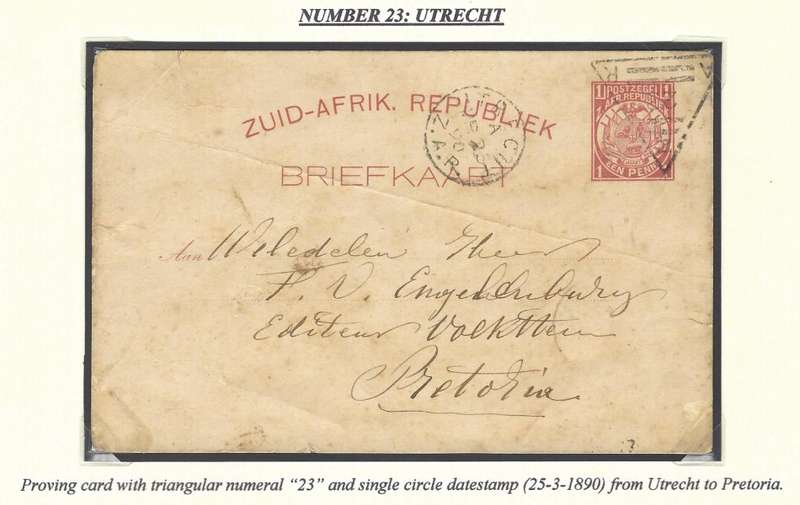 NUMBER 23: UTRECHT
ZUID-AFRIK. REPUBLIEK
BRIEFKAART
POSTZEGEL
AFR. REPUBLIEK
EEN PENNY
1
1
Z.A.R.
Aan Weledelen Heer
F. V. Engelenburg
Editeur Volkstem
Pretoria.
23
Proving card with triangular numeral "23" and single circle datestamp (25-3-1890) from Utrecht to Pretoria.